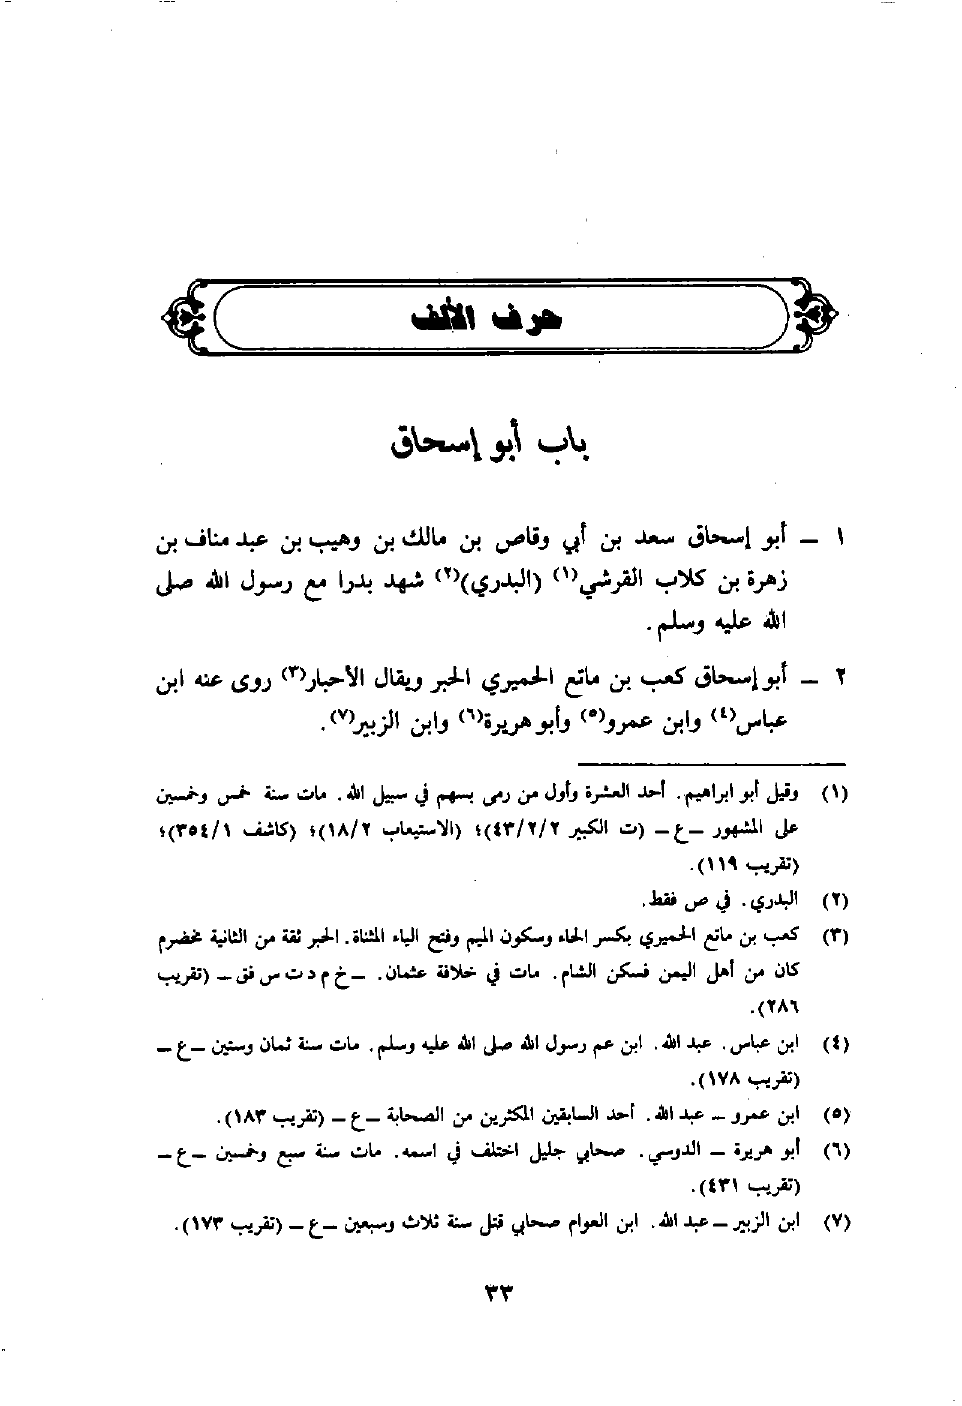 حرف الألف
باب أبو إسحاق
١ — أبو إسحاق سعد بن أبي وقاص بن مالك بن وهيب بن عبد مناف بن
زهرة بن كلاب القرشي(١) (البدري)(٢) شهد بدرا مع رسول الله صلى
الله عليه وسلم.
٢ — أبو إسحاق كعب بن ماتع الحميري الحبر ويقال الأحبار(٣) روى عنه ابن
عباس(٤) وابن عمرو(٥) وأبو هريرة(٦) وابن الزبير(٧).
(١) وقيل أبو ابراهيم. أحد العشرة وأول من رمى بسهم في سبيل الله. مات سنة خمس وخمسين
على المشهور —ع— (ت الكبير ٤٣/٢/٢)؛ (الاستيعاب ١٨/٢)؛ (كاشف ٣٥٤/١)؛
(تقريب ١١٩).
(٢) البدري. في ص فقط.
(٣) كعب بن ماتع الحميري بكسر الحاء وسكون الميم وفتح الياء المثناة. الحبر ثقة من الثانية مخضرم
كان من أهل اليمن فسكن الشام. مات في خلافة عثمان. —خ م د ت س فق— (تقريب
٢٨٦).
(٤) ابن عباس. عبد الله. ابن عم رسول الله صلى الله عليه وسلم. مات سنة ثمان وستين —ع—
(تقريب ١٧٨).
(٥) ابن عمرو — عبد الله. أحد السابقين المكثرين من الصحابة —ع— (تقريب ١٨٣).
(٦) أبو هريرة — الدوسي. صحابي جليل اختلف في اسمه. مات سنة سبع وخمسين —ع—
(تقريب ٤٣١).
(٧) ابن الزبير — عبد الله. ابن العوام صحابي قتل سنة ثلاث وسبعين —ع— (تقريب ١٧٣).
٣٣